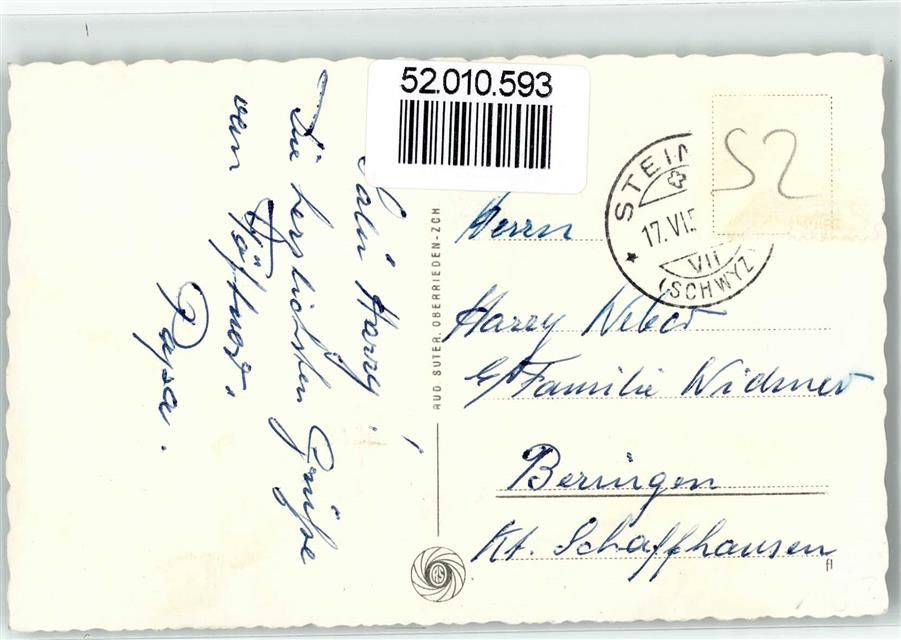 52.010.593
Salü Harry!
Die herzlichsten Grüsse
vom
Papa.
RUD. SUTER, OBERRIEDEN-ZCH
RS
STEIN
17. VI. 5
VII
(SCHWYZ)
52
Herrn
Harry
c/o Familie Widmer
Beringen
Kt. Schaffhausen
fl